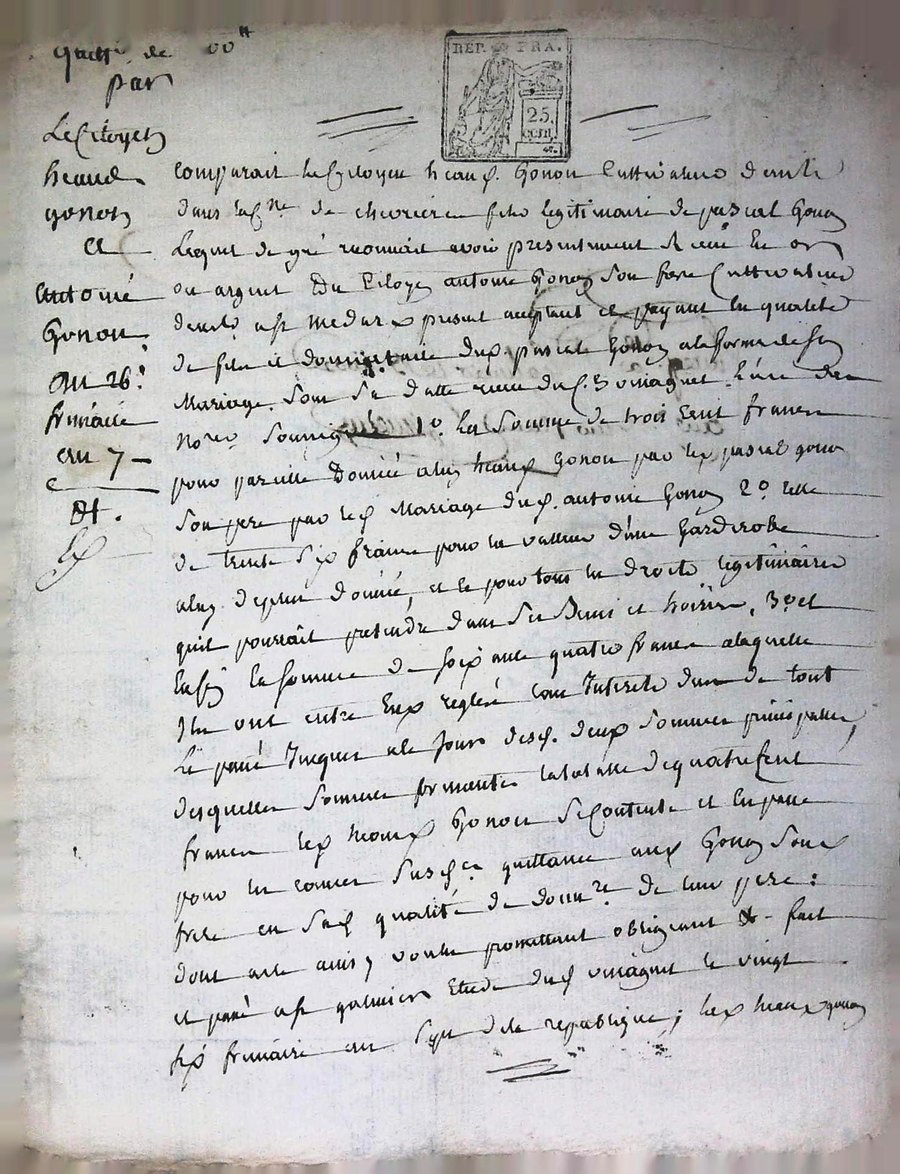 Quitt. de 400 tt
par
Le Citoyen
heaud
gonon
et
antoine
Gonon
du 26e
frimaire
an 7
Dt.
REP. FRA.
25.
cen.
comparait le Citoyen heaud Gonon Cultivateur demt
dans la Cne de chevrieres fils legitimaire de pascal Gonon
Lequel de gré reconnait avoir presentement Receu en or
ou argent Du Citoyen antoine Gonon son frere Cultivateur
demt a st medard present acceptant et payant en qualité
de fils et donataire dud pascal Gonon a la forme de son
Mariage sous sa datte receu dud Vinagnet L'un des
Nores soussignés 1o. La Somme de trois Cent francs
pour pareille Donnée aud heaud Gonon par led pascal gonon
son pere par led Mariage dud. antoine Gonon 2o. celle
de trente six francs pour la valleur d'une Garderobe
aluy deplus donnée, et ce pour tous les droits legitimaires
quil pourrait pretendre dans ses Biens et hoiries, 3o et
Enfin la somme de soixante quatre francs a laquelle
Ils ont entre Eux reglés les Interets dus de tout
Le passé Jusques a ce Jour desd. deux sommes principalles,
desquelles sommes formantes la totalle de quatre Cent
francs led heaud Gonon se Contente et En passe
pour les causes susdes quittance aud Gonon sond
frere en sad qualité de donnre de leur pere:
dont acte ainsy voulu promettant obligeant &- fait
et passé a st galmier Etude dud Vinagnet le vingt
six frimaire an sept de la republique; led heaud gonon